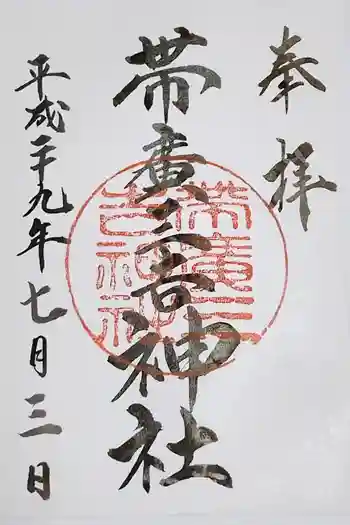 奉拝
帯廣三吉神社
平成二十九年七月三日
帯廣三
吉神社